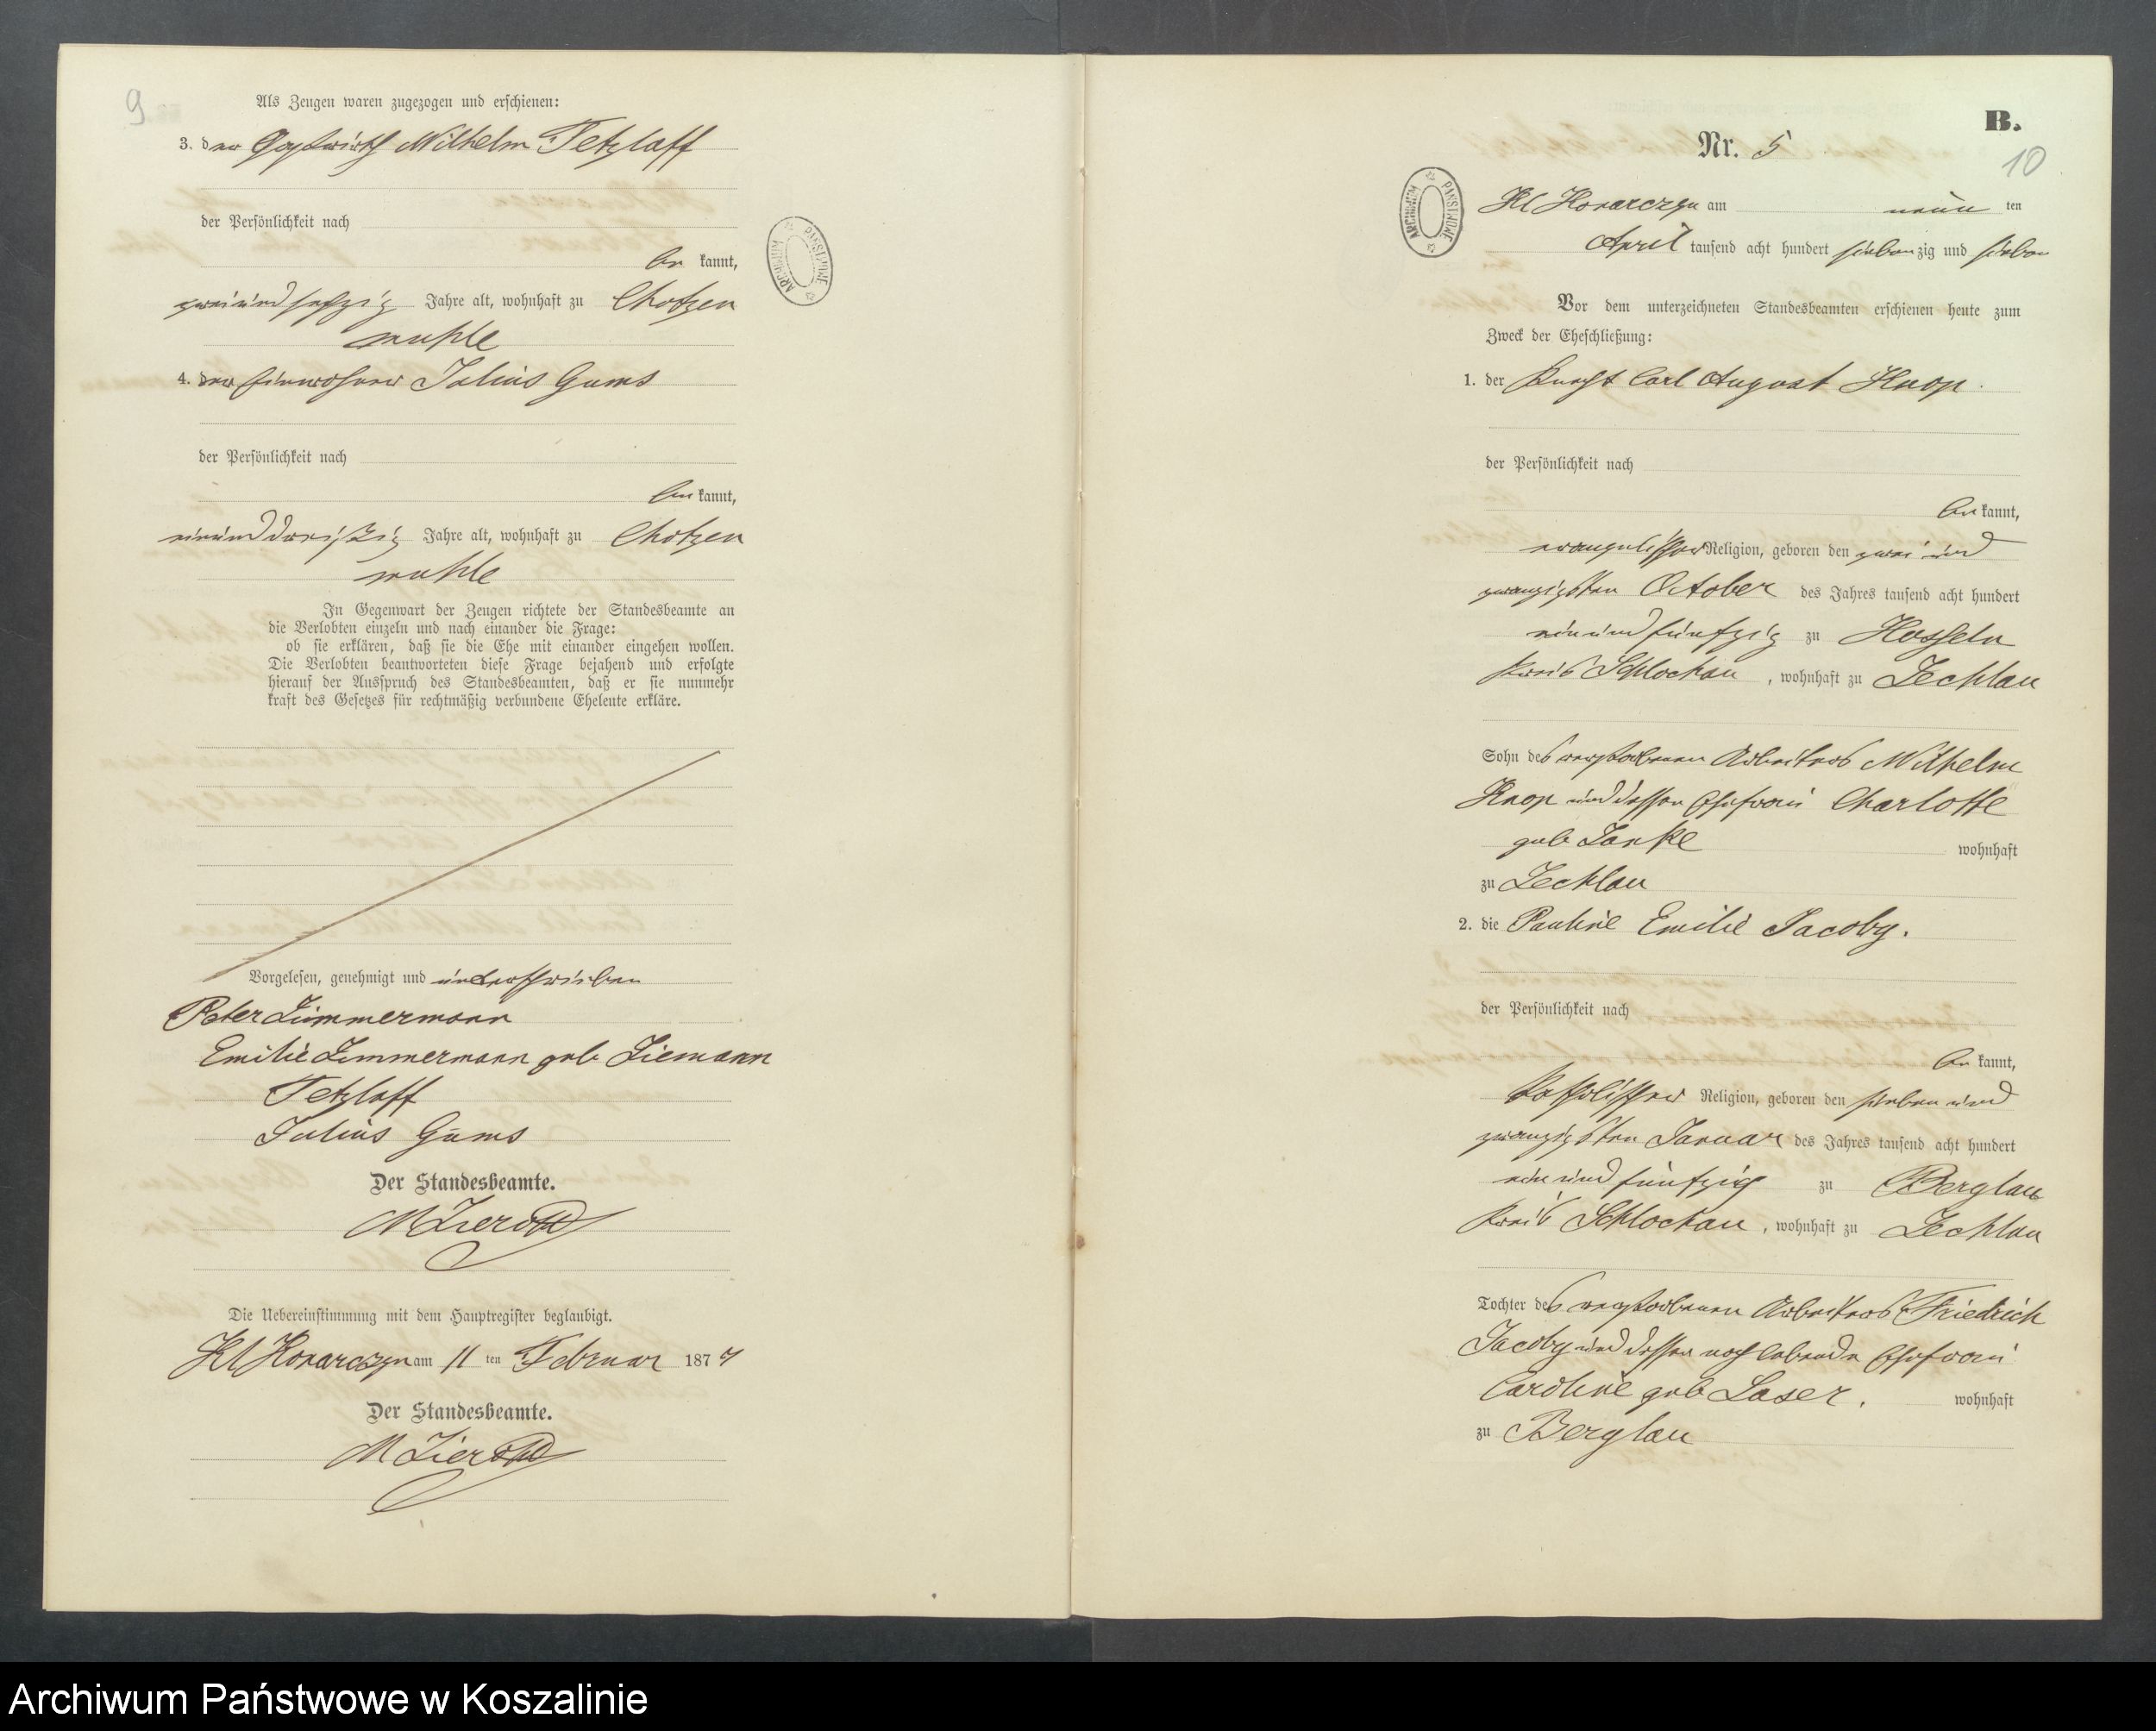 9
Als Zeugen waren zugezogen und erschienen:
3. der Gastwirth Wilhelm Tetzlaff
der Persönlichkeit nach
be kannt,
zweiundsechzig Jahre alt, wohnhaft zu Chotzen
muhle
4. der Einwohner Julius Gums
der Persönlichkeit nach
be kannt,
einunddreißig Jahre alt, wohnhaft zu Chotzen
muhle
In Gegenwart der Zeugen richtete der Standesbeamte an
die Verlobten einzeln und nach einander die Frage:
ob sie erklären, daß sie die Ehe mit einander eingehen wollen.
Die Verlobten beantworteten diese Frage bejahend und erfolgte
hierauf der Ausspruch des Standesbeamten, daß er sie nunmehr
kraft des Gesetzes für rechtmäßig verbundene Eheleute erkläre.
Vorgelesen, genehmigt und unterschrieben
Peter Zimmermann
Emilie Zimmermann geb Ziemann
Tetzlaff
Julius Gums
Der Standesbeamte.
Die Uebereinstimmung mit dem Hauptregister beglaubigt.
Kl Konarczyn am 11 ten Februar 1877
Der Standesbeamte.
ARCHIWUM PAŃSTWOWE
B.
10
Nr. 5
ARCHIWUM PAŃSTWOWE
Kl Konarczyn am neun ten
April tausend acht hundert siebenzig und sieben
Vor dem unterzeichneten Standesbeamten erschienen heute zum
Zweck der Eheschließung:
1. der Knecht Carl August Knop.
der Persönlichkeit nach
be kannt,
evangelischer Religion, geboren den zwei und
zwanzigsten October des Jahres tausend acht hundert
ein und fünfzig zu Hosseln
Kreis Schlochau, wohnhaft zu Zechlau
Sohn des verstorbenen Arbeiters Wilhelm
Knop und dessen Ehefrau Charlotte
geb Janke wohnhaft
zu Zechlau
2. die Pauline Emilie Jacoby.
der Persönlichkeit nach
be kannt,
katholischer Religion, geboren den sieben und
zwanzigsten Januar des Jahres tausend acht hundert
ein und fünfzig zu Berglau
Kreis Schlochau, wohnhaft zu Zechlau
Tochter des verstorbenen Arbeiters Friedrich
Jacoby und dessen noch lebende Ehefrau
Caroline geb Laser. wohnhaft
zu Berglau
Archiwum Państwowe w Koszalinie